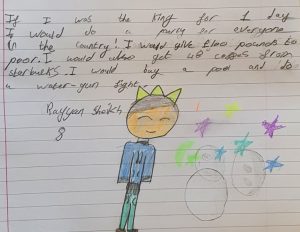 If I was the King for 1 day
I would do a party for everyone
in the country! I would give £100 pounds to
poor. I would also get 48 from
starbulks. I would buy a pool and do
a water-gun fight.
Rayyan Sheikh
8